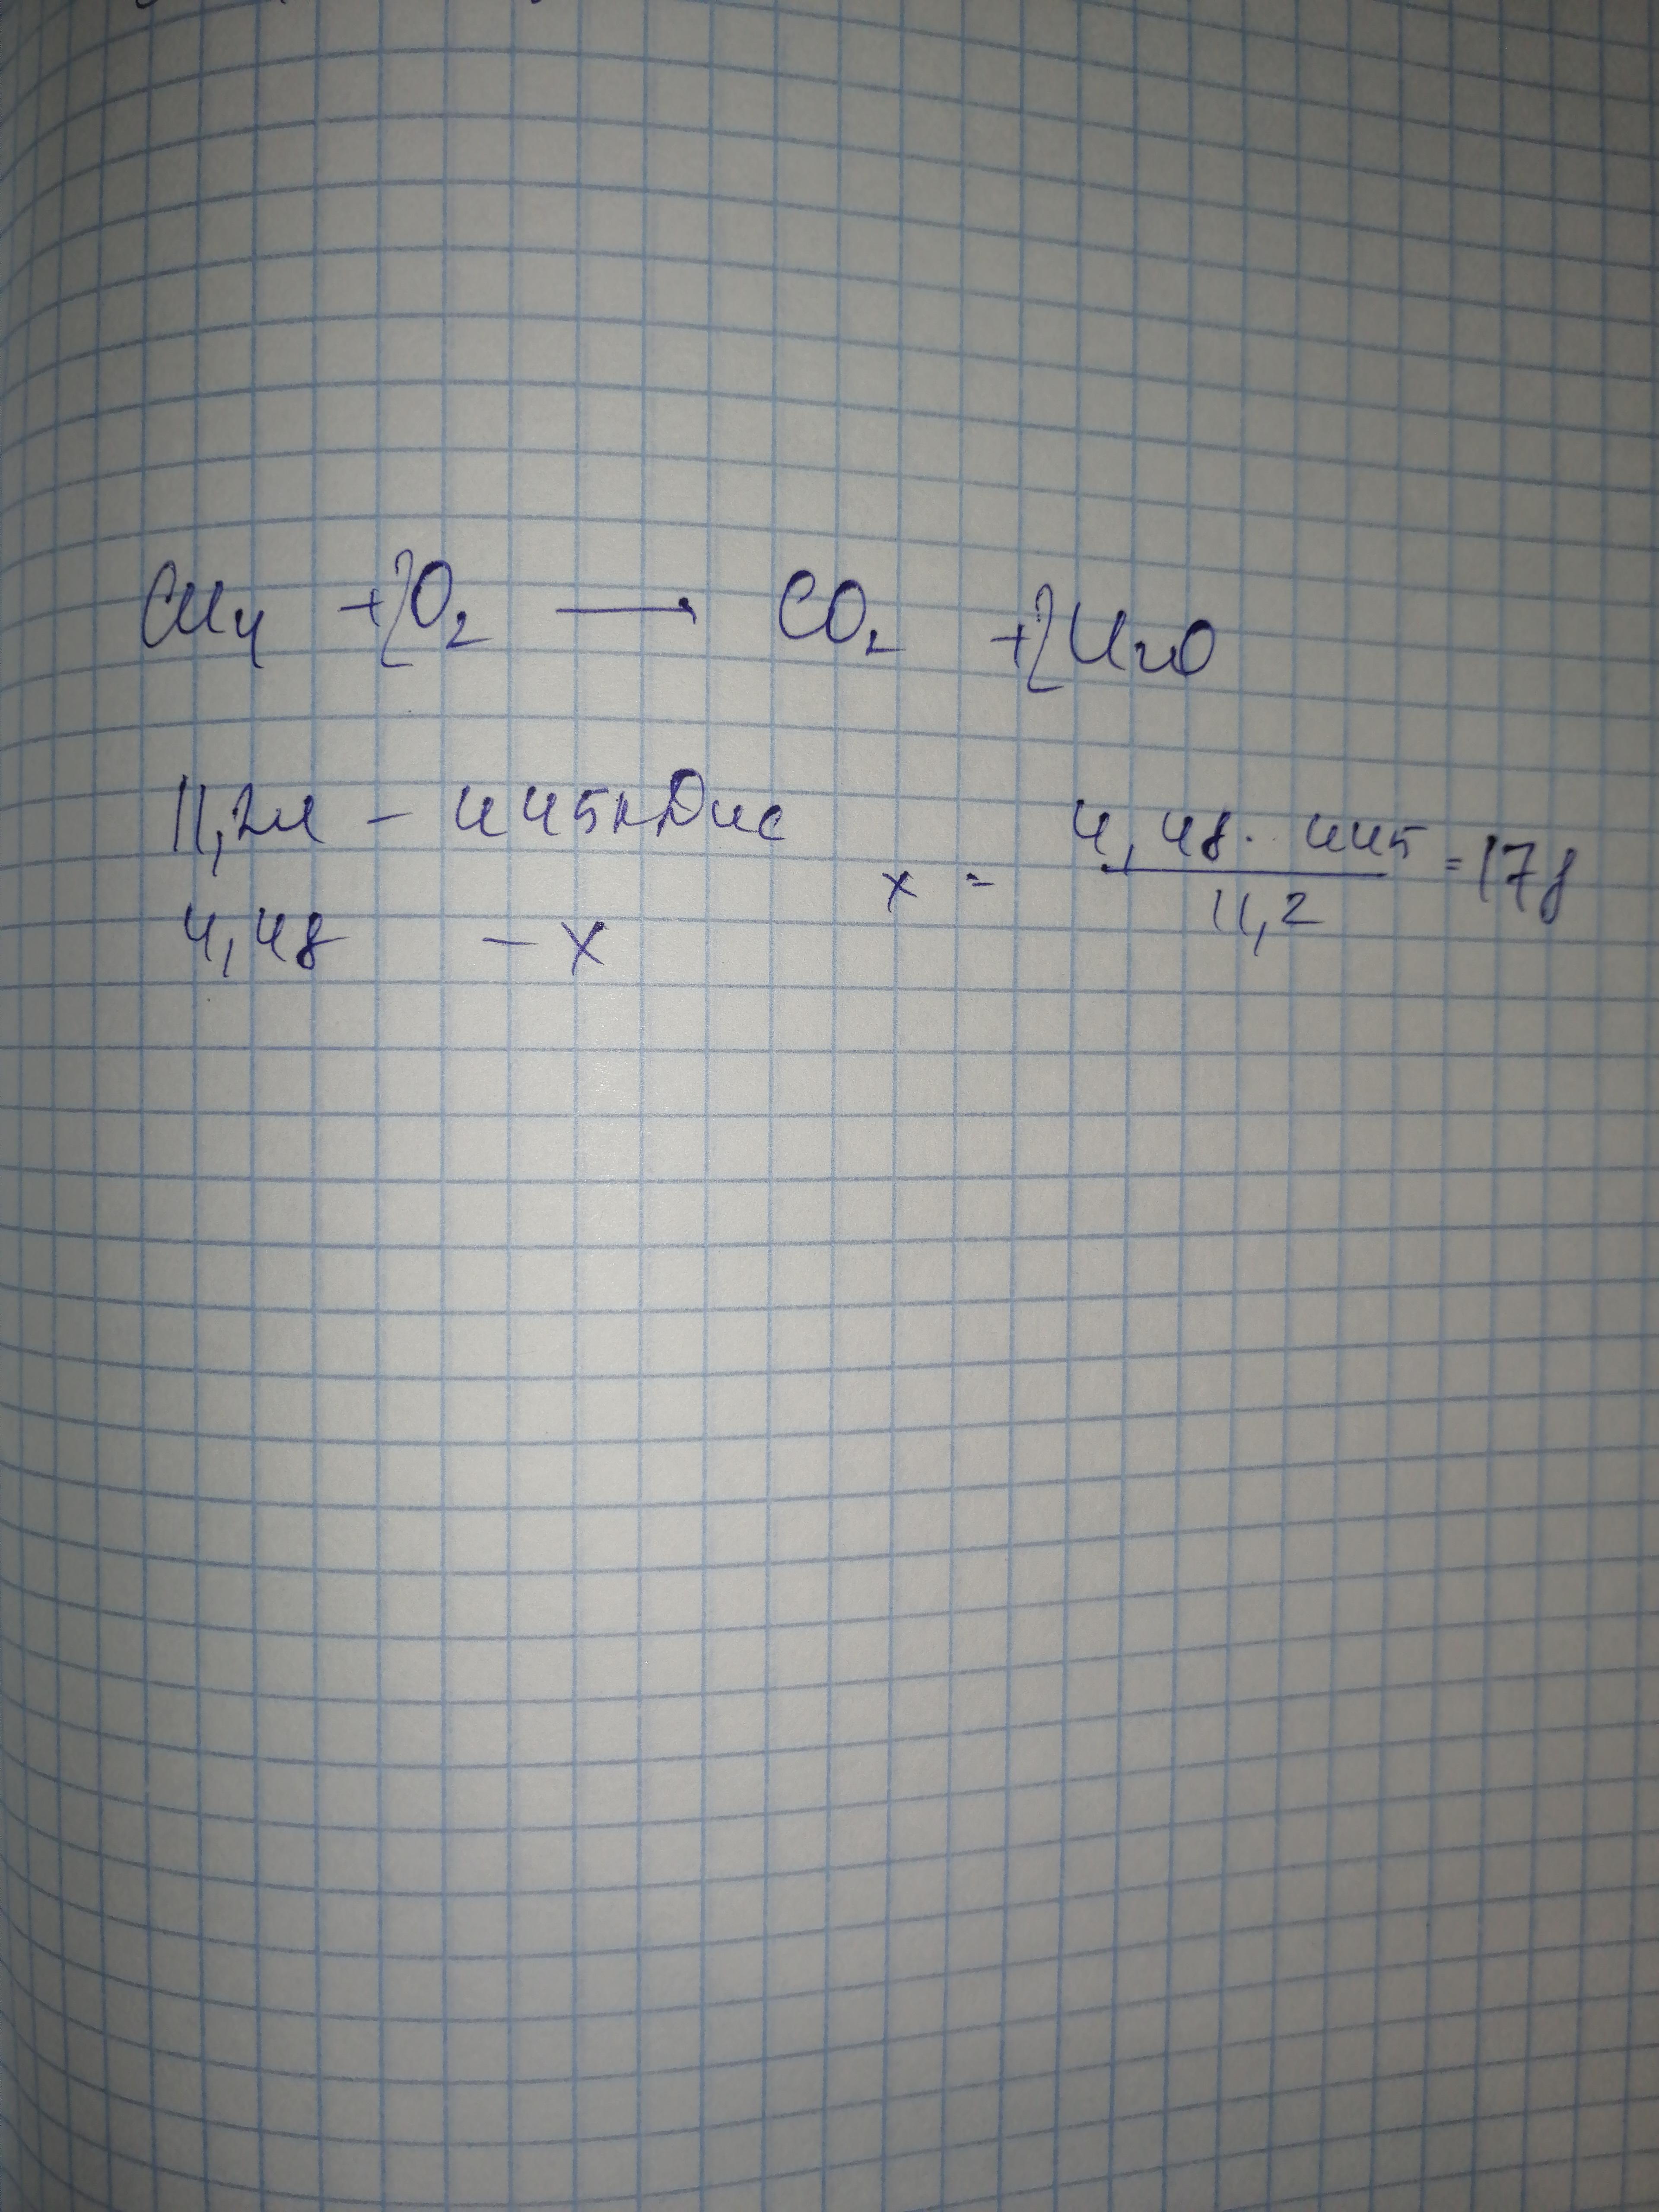 CH₄ + 2O₂ → CO₂ + 2H₂O
11,2л – 445кДж
4,48 – x
x = 4,48 · 445 / 11,2 = 178